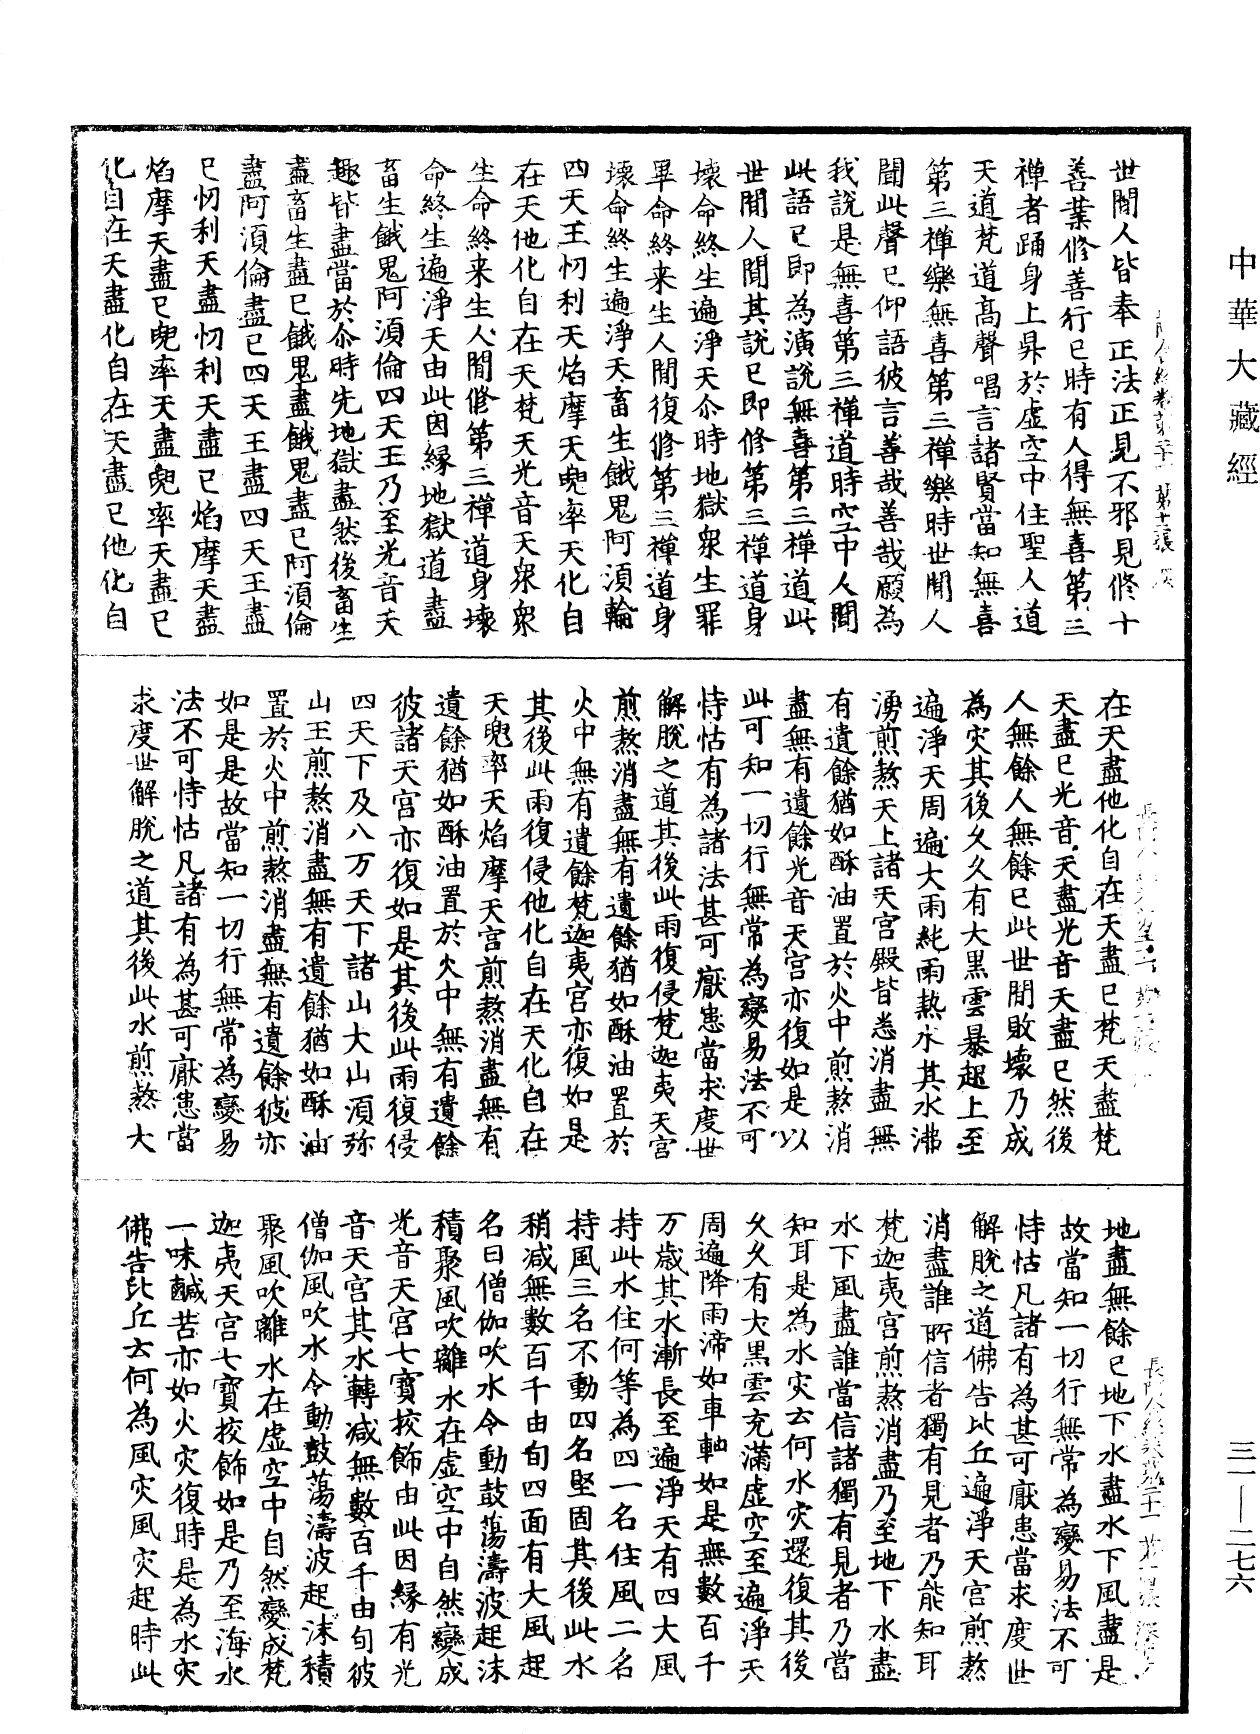 中華大藏經
世間人皆奉正法正見不邪見修十
善業修善行已時有人得無喜第三
禪者踊身上昇於虛空中住聖人道
天道梵道高聲唱言諸賢當知無喜
第三禪樂無喜第三禪樂時世間人
聞此聲已仰語彼言善哉善哉願為
我說是無喜第三禪道時空中人聞
此語已即為演說無喜第三禪道此
世間人聞其說已即修第三禪道身
壞命終生遍淨天尒時地獄眾生罪
畢命終来生人間復修第三禪道身
壞命終生遍淨天畜生餓鬼阿須輪
四天王忉利天焰摩天兜率天化自
在天他化自在天梵天光音天眾眾
生命終来生人間修第三禪道身壞
命終生遍淨天由此因緣地獄道盡
畜生餓鬼阿須倫四天王乃至光音天
趣皆盡當於尒時先地獄盡然後畜生
盡畜生盡已餓鬼盡餓鬼盡已阿須倫
盡阿須倫盡已四天王盡四天王盡
已忉利天盡忉利天盡已焰摩天盡
焰摩天盡已兜率天盡兜率天盡已
化自在天盡化自在天盡已他化自
在天盡他化自在天盡已梵天盡梵
天盡已光音天盡光音天盡已然後
人無餘人無餘已此世間敗壞乃成
為灾其後久久有大黑雲暴起上至
遍淨天周遍大雨純雨熱水其水沸
湧煎熬天上諸天宮殿皆悉消盡無
有遺餘猶如酥油置於火中煎熬消
盡無有遺餘光音天宮亦復如是以
此可知一切行無常為變易法不可
恃怙有為諸法甚可厭患當求度世
解脫之道其後此雨復侵梵迦夷天宮
煎熬消盡無有遺餘猶如酥油置於
火中無有遺餘梵迦夷宮亦復如是
其後此雨復侵他化自在天化自在
天兜率天焰摩天宮煎熬消盡無有
遺餘猶如酥油置於火中無有遺餘
彼諸天宮亦復如是其後此雨復侵
四天下及八万天下諸山大山須弥
山王煎熬消盡無有遺餘猶如酥油
置於火中煎熬消盡無有遺餘彼亦
如是是故當知一切行無常為變易
法不可恃怙凡諸有為甚可厭患當
求度世解脫之道其後此水煎熬大
地盡無餘已地下水盡水下風盡是
故當知一切行無常為變易法不可
恃怙凡諸有為甚可厭患當求度世
解脫之道佛告比丘遍淨天宮煎熬
消盡誰所信者獨有見者乃能知耳
梵迦夷宮煎熬消盡乃至地下水盡
水下風盡誰當信諸獨有見者乃當
知耳是為水灾云何水灾還復其後
久久有大黑雲充滿虛空至遍淨天
周遍降雨渧如車軸如是無數百千
万歲其水漸長至遍淨天有四大風
持此水住何等為四一名住風二名
持風三名不動四名堅固其後此水
稍減無數百千由旬四面有大風起
名曰僧伽吹水令動鼓蕩濤波起沫
積聚風吹離水在虛空中自然變成
光音天宮七寶挍飾由此因緣有光
音天宮其水轉減無數百千由旬彼
僧伽風吹水令動鼓蕩濤波起沫積
聚風吹離水在虛空中自然變成梵
迦夷天宮七寶挍飾如是乃至海水
一味鹹苦亦如火灾復時是為水灾
佛告比丘云何為風灾風灾起時此
三一—二七六